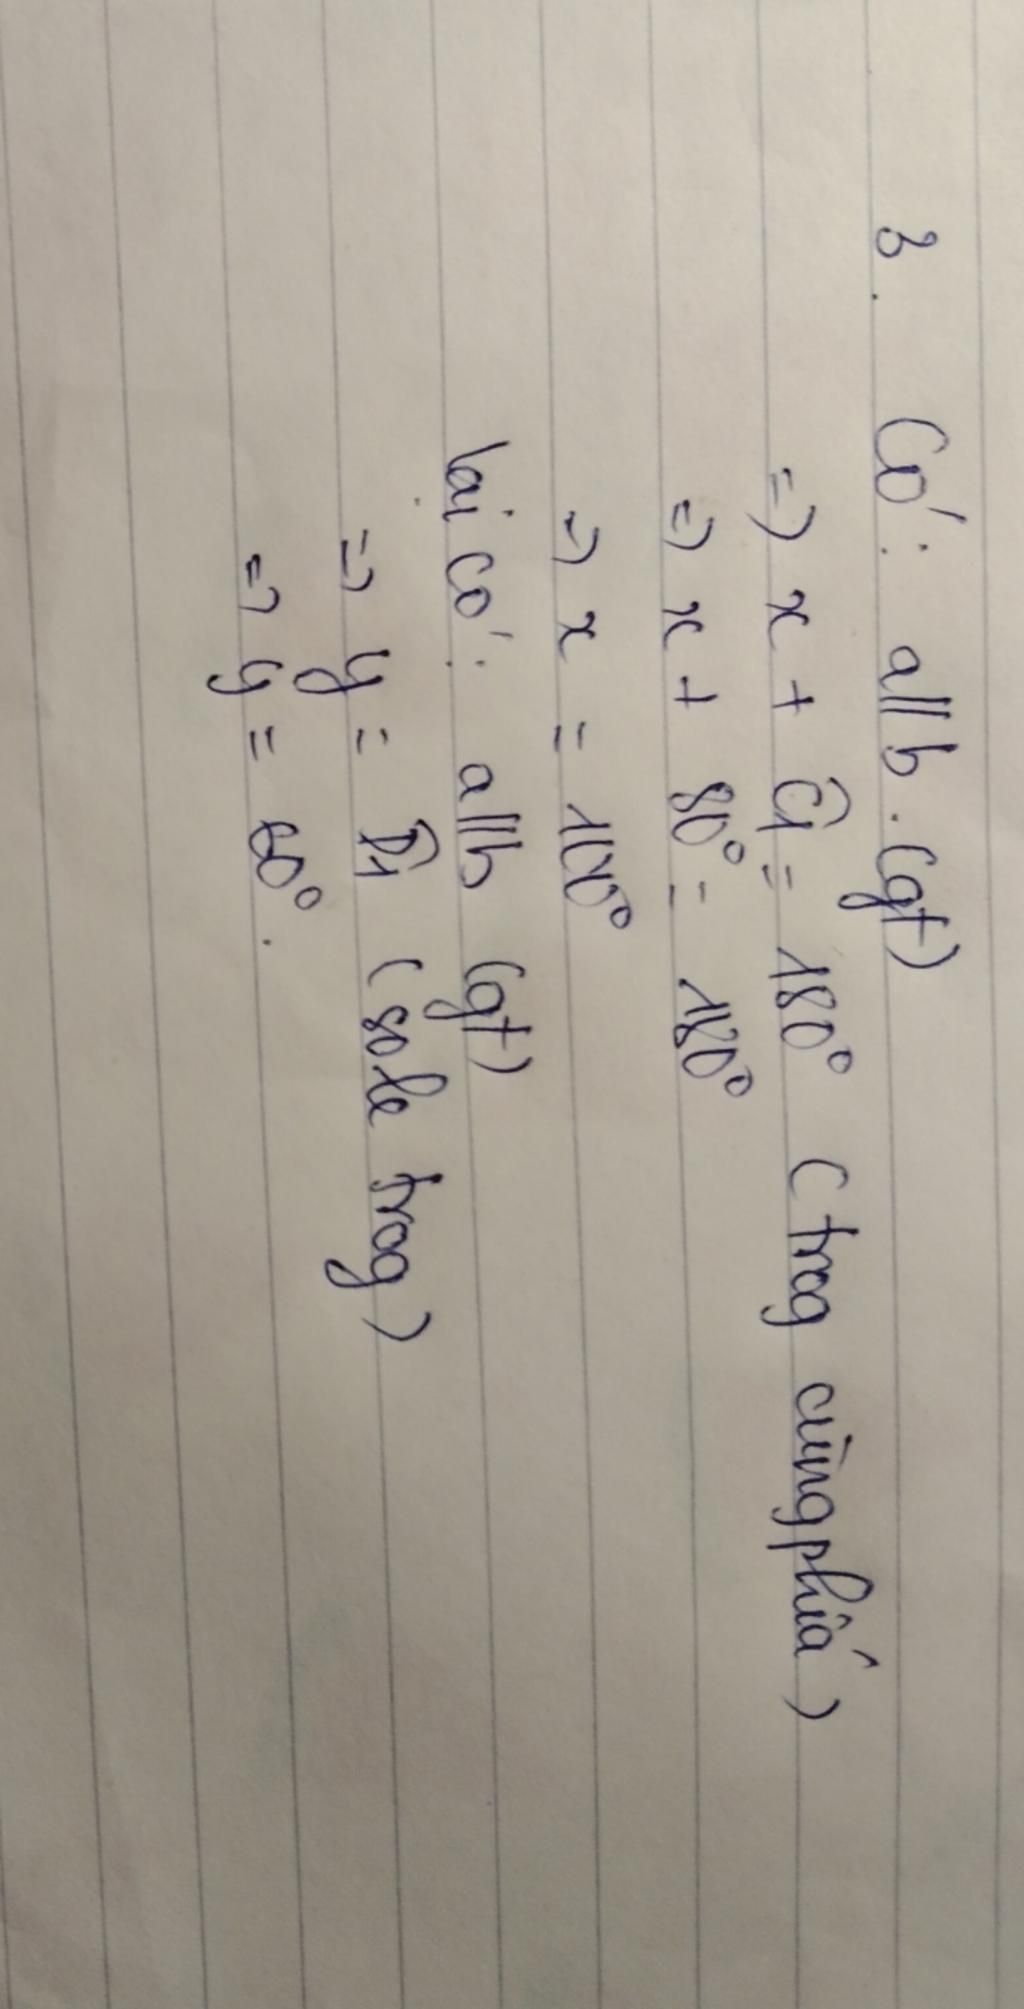 3. Có: a//b. (gt)
=) x + Ĉ1 = 180° (trog cùng phía)
=) x + 80° = 180°
=) x = 100°
lại có: a//b (gt)
=) y = D̂1 (sole trog)
=) y = 60°.